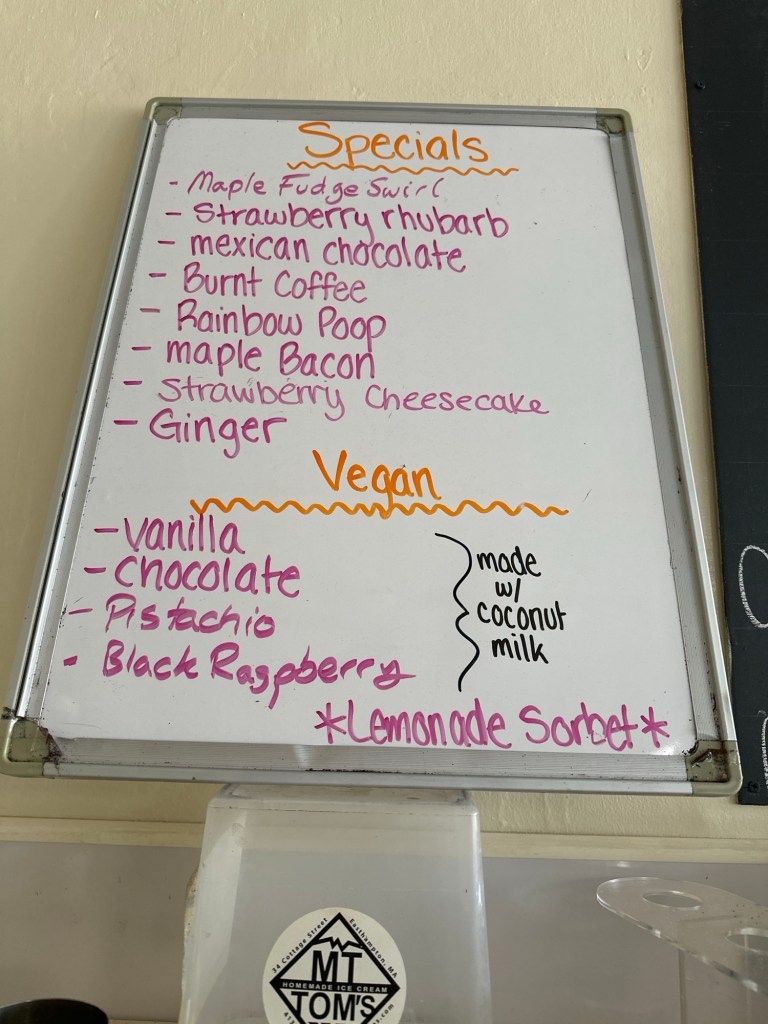 Specials
- Maple Fudge Swirl
- Strawberry rhubarb
- mexican chocolate
- Burnt Coffee
- Rainbow Poop
- maple Bacon
- Strawberry Cheesecake
- Ginger
Vegan
- vanilla
- Chocolate
- Pistachio
- Black Raspberry
made
w/
coconut
milk
*Lemonade Sorbet*
24 Cottage Street
Easthampton, MA
MT
HOMEMADE ICE CREAM
TOM'S